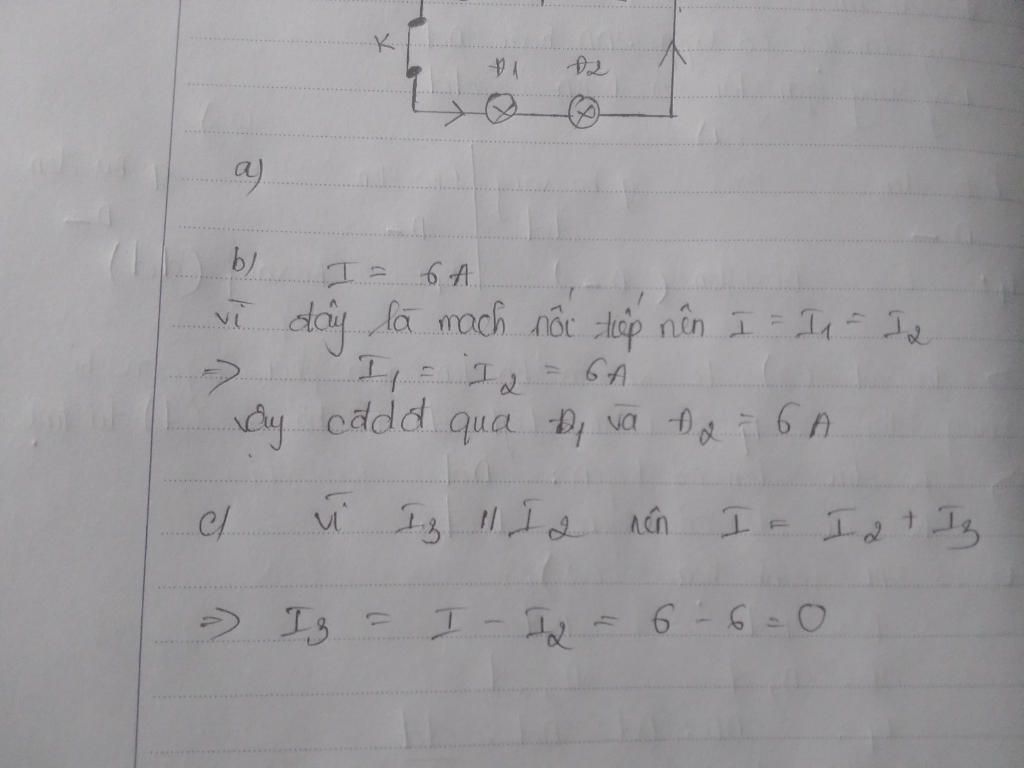 K
Đ1 Đ2
a)
b) I = 6A
vì đây là mạch nối tiếp nên I = I1 = I2
=> I1 = I2 = 6A
vậy cđdđ qua Đ1 và Đ2 = 6A
c) vì I3 // I2 nên I = I2 + I3
=> I3 = I - I2 = 6 - 6 = 0